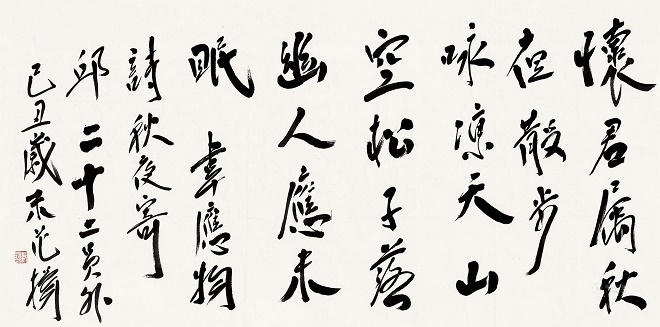 懷君屬秋
夜散步
咏凉天山
空松子落
幽人應未
眠 韋應物
詩秋夜寄
邱二十二員外
己丑歲末范